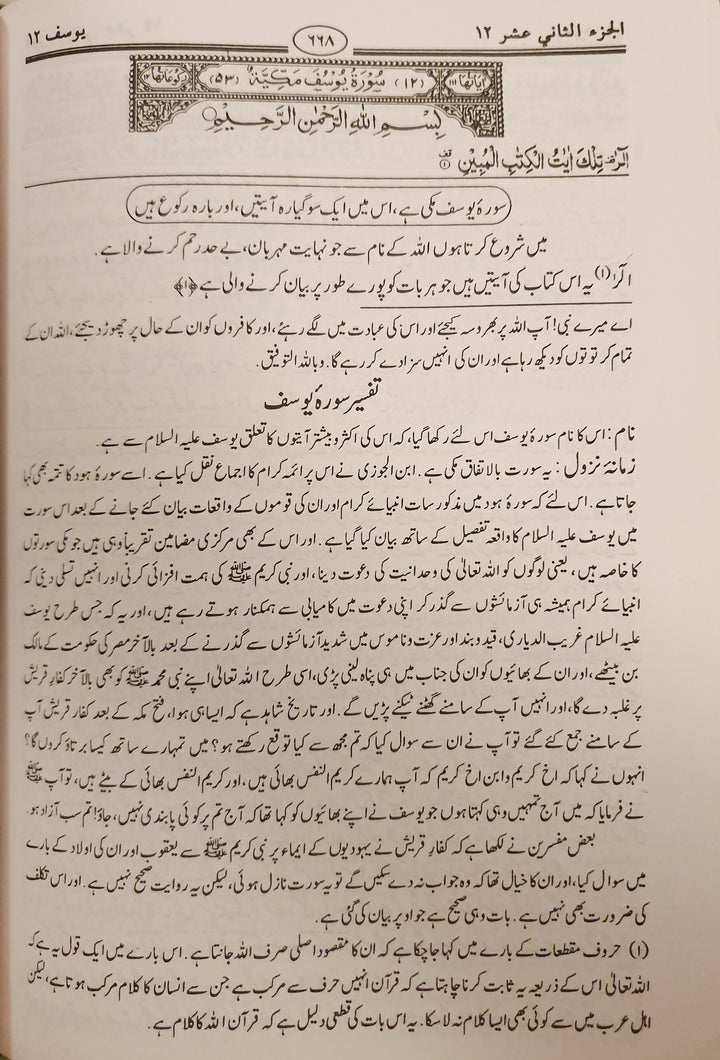 الجزء الثاني عشر ١٢ ٦٦٨ یوسف ١٢
اٰیاتھا ١١١ (١٢) سُوْرَةُ يُوْسُفَ مَكِّيَّةٌ (٥٣) رکوعاتھا ١٢
بِسْمِ اللهِ الرَّحْمٰنِ الرَّحِيْمِ
الٓرٰ ۫ تِلْكَ اٰیٰتُ الْكِتٰبِ الْمُبِیْنِ ۟ قف ١
سورۂ یوسف مکی ہے، اس میں ایک سو گیارہ آیتیں، اور بارہ رکوع ہیں
میں شروع کرتا ہوں اللہ کے نام سے جو نہایت مہربان، بے حد رحم کرنے والا ہے.
الٓرٰ (١) یہ اس کتاب کی آیتیں ہیں جو ہر بات کو پورے طور پر بیان کرنے والی ہے ﴿١﴾
اے میرے نبی! آپ اللہ پر بھروسہ کیجئے اور اس کی عبادت میں لگے رہئے، اور کافروں کو ان کے حال پر چھوڑ دیجئے، اللہ ان کے
تمام کرتوتوں کو دیکھ رہا ہے اور ان کی انہیں سزا دے کر رہے گا. وباللہ التوفیق.
تفسیر سورۂ یوسف
نام: اس کا نام سورۂ یوسف اس لئے رکھا گیا، کہ اس کی اکثر و بیشتر آیتوں کا تعلق یوسف علیہ السلام سے ہے.
زمانۂ نزول: یہ سورت بالاتفاق مکی ہے. ابن الجوزی نے اس پر ائمہ کرام کا اجماع نقل کیا ہے. اسے سورۂ ہود کا تتمہ بھی کہا
جاتا ہے. اس لئے کہ سورۂ ہود میں مذکور سات انبیائے کرام اور ان کی قوموں کے واقعات بیان کئے جانے کے بعد اس سورت
میں یوسف علیہ السلام کا واقعہ تفصیل کے ساتھ بیان کیا گیا ہے. اور اس کے بھی مرکزی مضامین تقریباً وہی ہیں جو مکی سورتوں
کا خاصہ ہیں، یعنی لوگوں کو اللہ تعالیٰ کی وحدانیت کی دعوت دینا، اور نبی کریم ﷺ کی ہمت افزائی کرنی اور انہیں تسلی دینی کہ
انبیائے کرام ہمیشہ ہی آزمائشوں سے گذر کر اپنی دعوت میں کامیابی سے ہمکنار ہوتے رہے ہیں، اور یہ کہ جس طرح یوسف
علیہ السلام غریب الدیاری، قید و بند اور عزت و ناموس میں شدید آزمائشوں سے گذرنے کے بعد بالآخر مصر کی حکومت کے مالک
بن بیٹھے، اور ان کے بھائیوں کو ان کی جناب میں ہی پناہ لینی پڑی، اسی طرح اللہ تعالیٰ اپنے نبی محمد ﷺ کو بھی بالآخر کفار قریش
پر غلبہ دے گا، اور انہیں آپ کے سامنے گھٹنے ٹیکنے پڑیں گے. اور تاریخ شاہد ہے کہ ایسا ہی ہوا، فتح مکہ کے بعد کفار قریش آپ
کے سامنے جمع کئے گئے تو آپ نے ان سے سوال کیا کہ تم مجھ سے کیا توقع رکھتے ہو؟ میں تمہارے ساتھ کیسا برتاؤ کروں گا؟
انہوں نے کہا کہ اخ کریم وابن اخ کریم کہ آپ ہمارے کریم النفس بھائی ہیں، اور کریم النفس بھائی کے بیٹے ہیں، تو آپ ﷺ
نے فرمایا کہ میں آج تمہیں وہی کہتا ہوں جو یوسف نے اپنے بھائیوں کو کہا تھا کہ آج تم پر کوئی پابندی نہیں، جاؤ! تم سب آزاد ہو
بعض مفسرین نے لکھا ہے کہ کفار قریش نے یہودیوں کے ایماء پر نبی کریم ﷺ سے یعقوب اور ان کی اولاد کے بارے
میں سوال کیا، اور ان کا خیال تھا کہ وہ جواب نہ دے سکیں گے تو یہ سورت نازل ہوئی، لیکن یہ روایت صحیح نہیں ہے. اور اس تکلف
کی ضرورت بھی نہیں ہے. بات وہی صحیح ہے جو اوپر بیان کی گئی ہے.
(١) حروف مقطعات کے بارے میں کہا جا چکا ہے کہ ان کا مقصود اصلی صرف اللہ جانتا ہے. اس بارے میں ایک قول یہ ہے کہ
اللہ تعالیٰ اس کے ذریعہ یہ ثابت کرنا چاہتا ہے کہ قرآن انہیں حرف سے مرکب ہے جن سے انسان کا کلام مرکب ہوتا ہے، لیکن
اہل عرب میں سے کوئی بھی ایسا کلام نہ لا سکا. یہ اس بات کی قطعی دلیل ہے کہ قرآن اللہ کا کلام ہے.